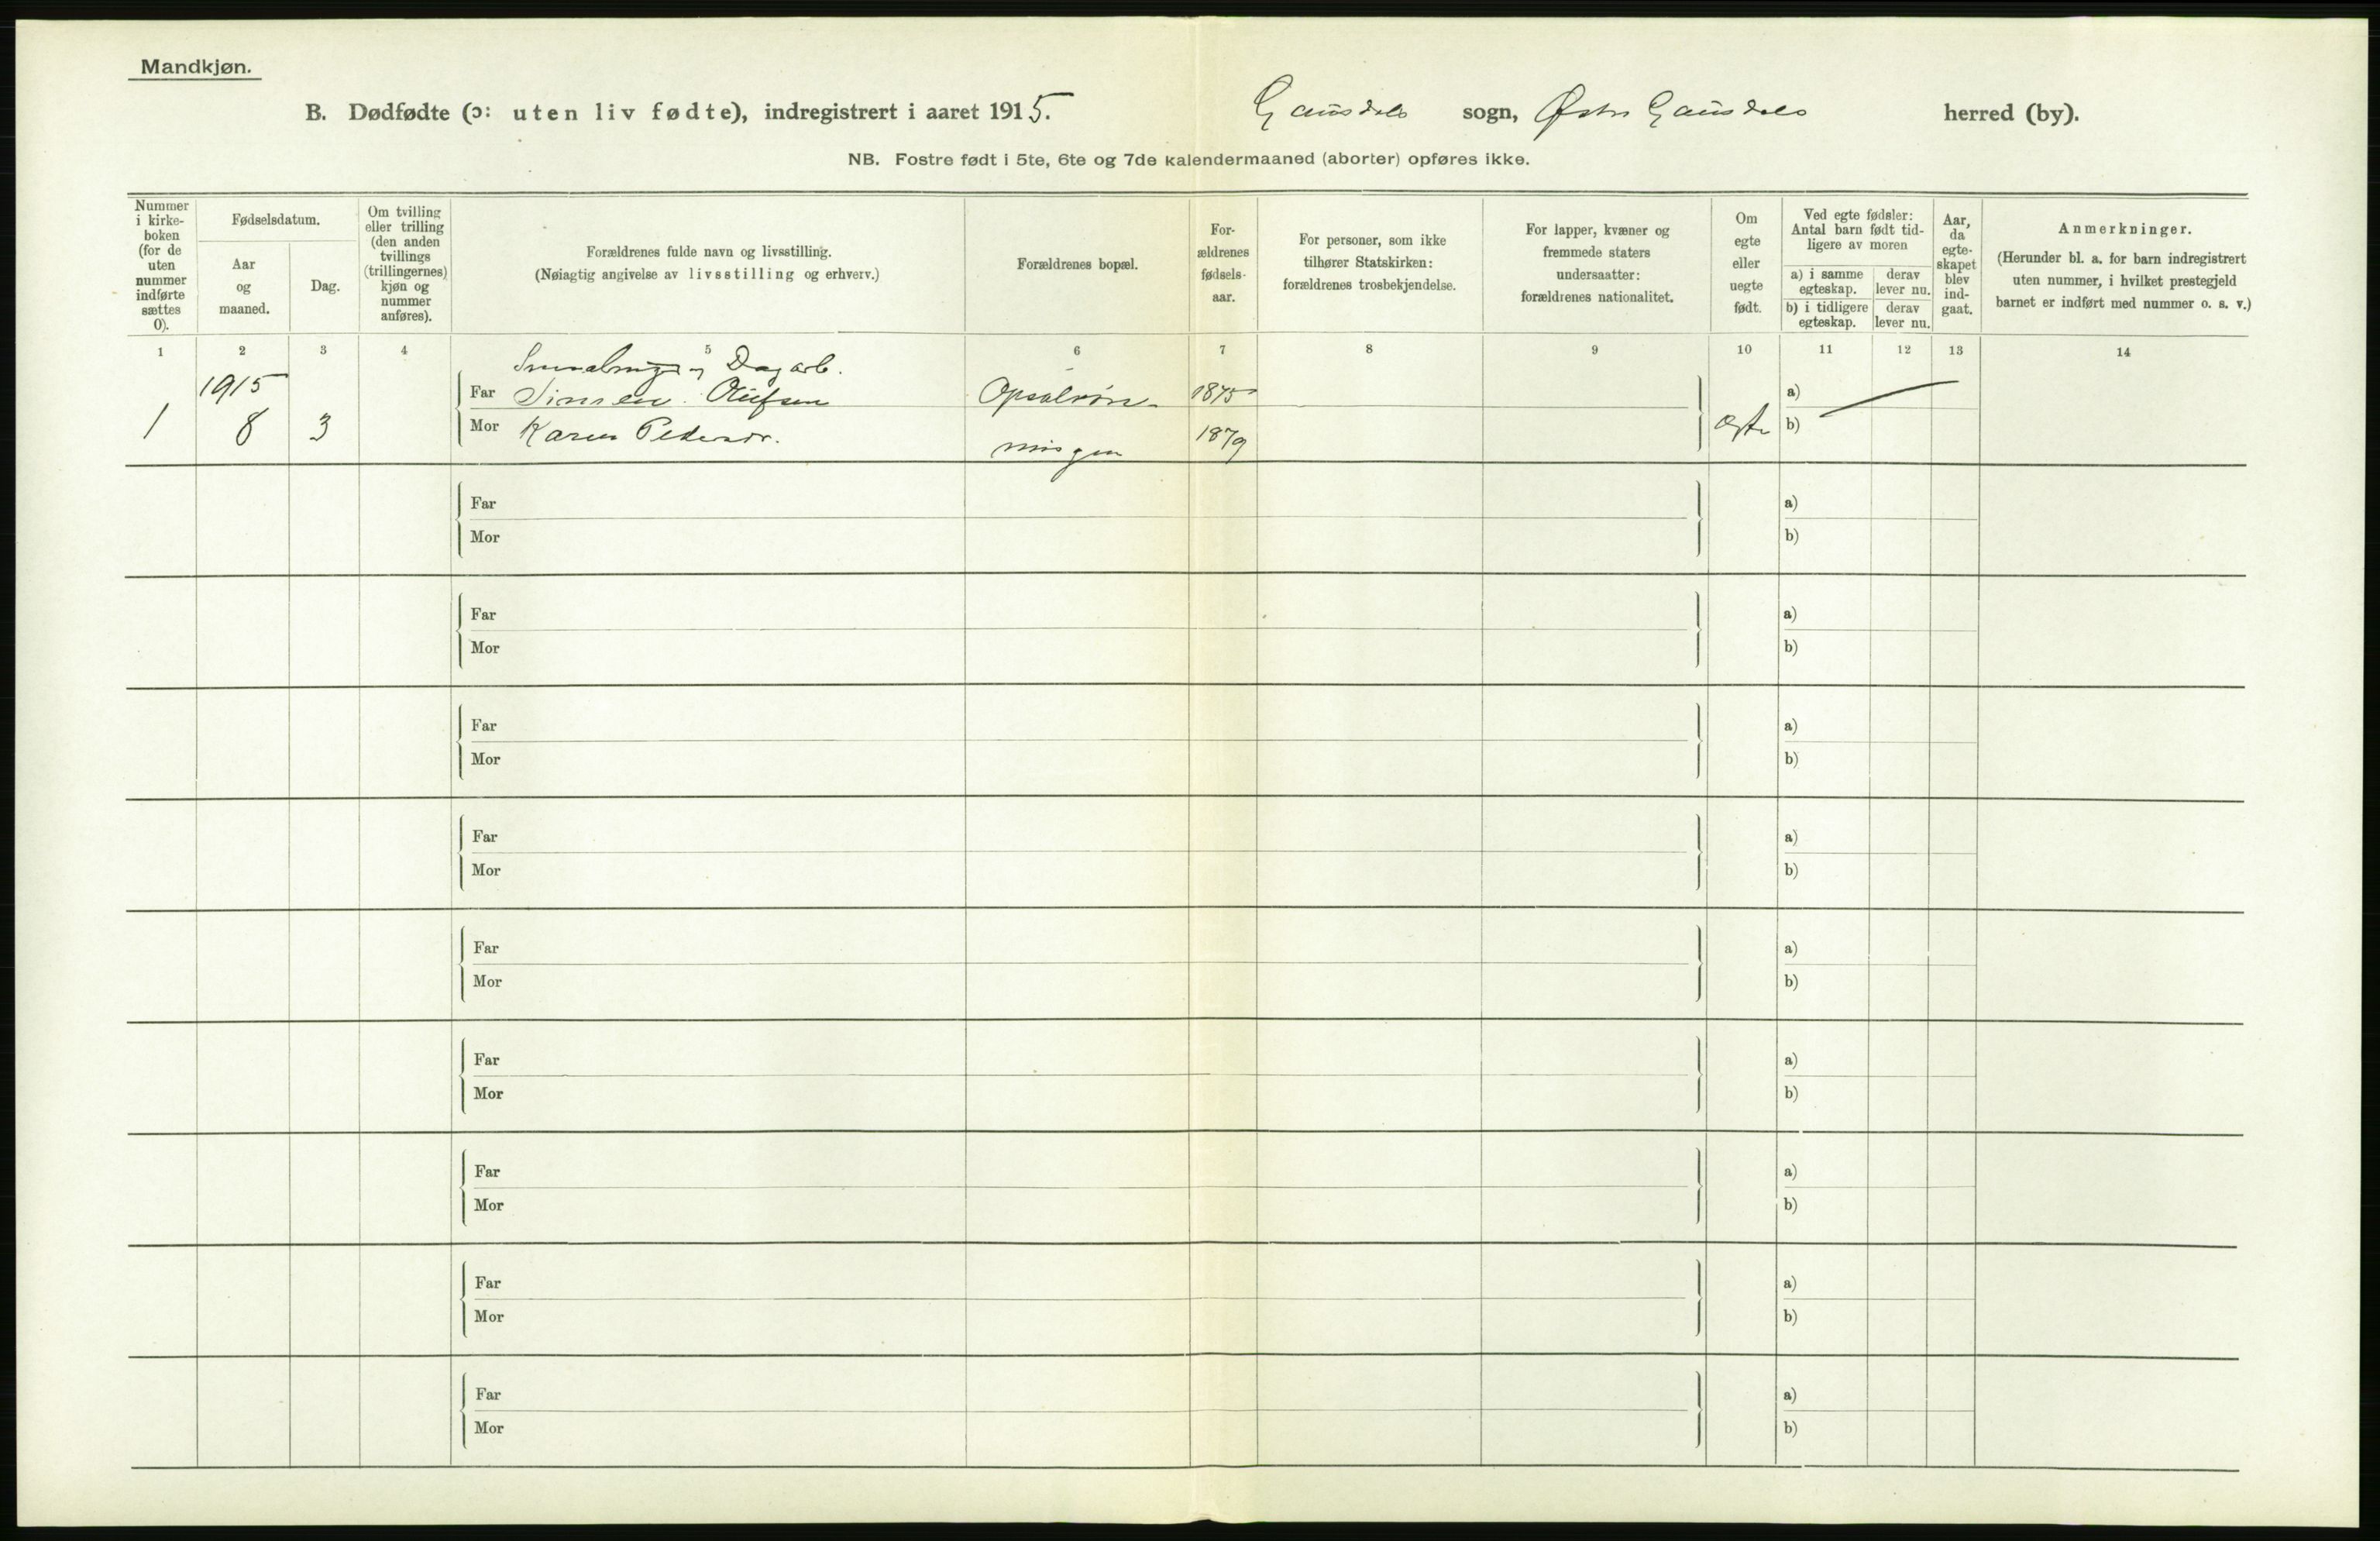 Mandkjøn.
B. Dødfødte (ɔ: uten liv fødte), indregistrert i aaret 1915. Gausdals sogn, Østre Gausdals herred (by).
NB. Fostre født i 5te, 6te og 7de kalendermaaned (aborter) opføres ikke.
Nummer i kirke-boken (for de uten nummer indførte sættes 0).
Fødselsdatum.
Aar og maaned.
Dag.
Om tvilling eller trilling (den anden tvillings (trillingernes) kjøn og nummer anføres).
Forældrenes fulde navn og livsstilling.
(Nøiagtig angivelse av livsstilling og erhverv.)
Forældrenes bopæl.
For-ældrenes fødsels-aar.
For personer, som ikke tilhører Statskirken: forældrenes trosbekjendelse.
For lapper, kvæner og fremmede staters undersaatter: forældrenes nationalitet.
Om egte eller uegte født.
Ved egte fødsler: Antal barn født tid-ligere av moren
a) i samme egteskap.
derav lever nu.
b) i tidligere egteskap.
derav lever nu.
Aar, da egte-skapet blev ind-gaat.
Anmerkninger.
(Herunder bl. a. for barn indregistrert uten nummer, i hvilket prestegjeld barnet er indført med nummer o. s. v.)
1 2 3 4 5 6 7 8 9 10 11 12 13 14
Dagarb.
1915 Far Simen Olufsen 1875 a)
1 8 3 Mor Karen Pedersdr. 1879 egte b)
Far a)
Mor b)
Far a)
Mor b)
Far a)
Mor b)
Far a)
Mor b)
Far a)
Mor b)
Far a)
Mor b)
Far a)
Mor b)
Far a)
Mor b)
Far a)
Mor b)